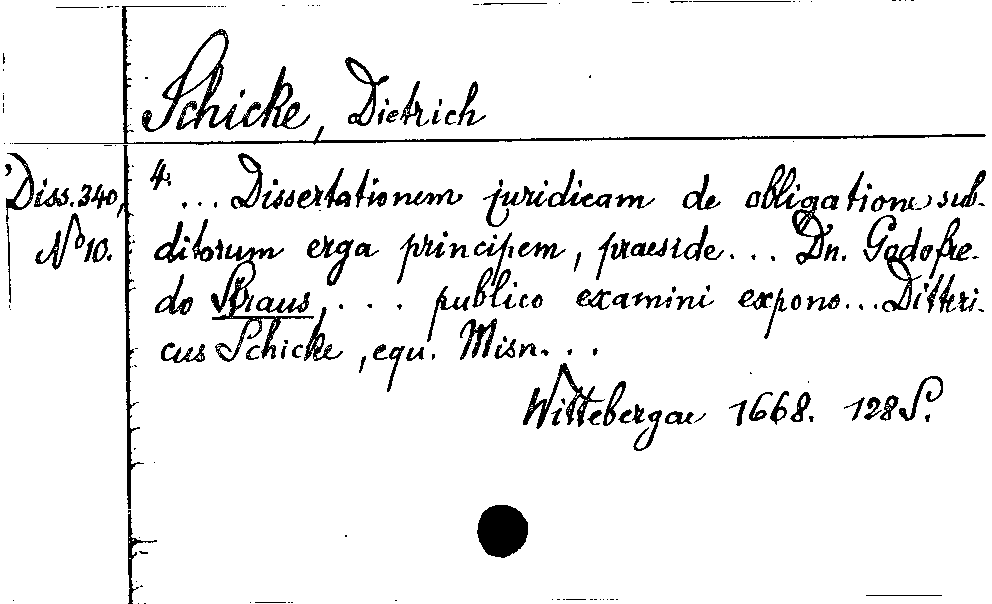 Schicke, Dietrich
Diss. 340, 4: ... Dissertationem juridicam de obligatione sub-
No 10. ditorum erga principem, praeside ... Dn. Godofre-
do Straus, ... publico examini expono ... Ditteri-
cus Schicke, equ. Misn. ...
Wittebergae 1668. 128 S.